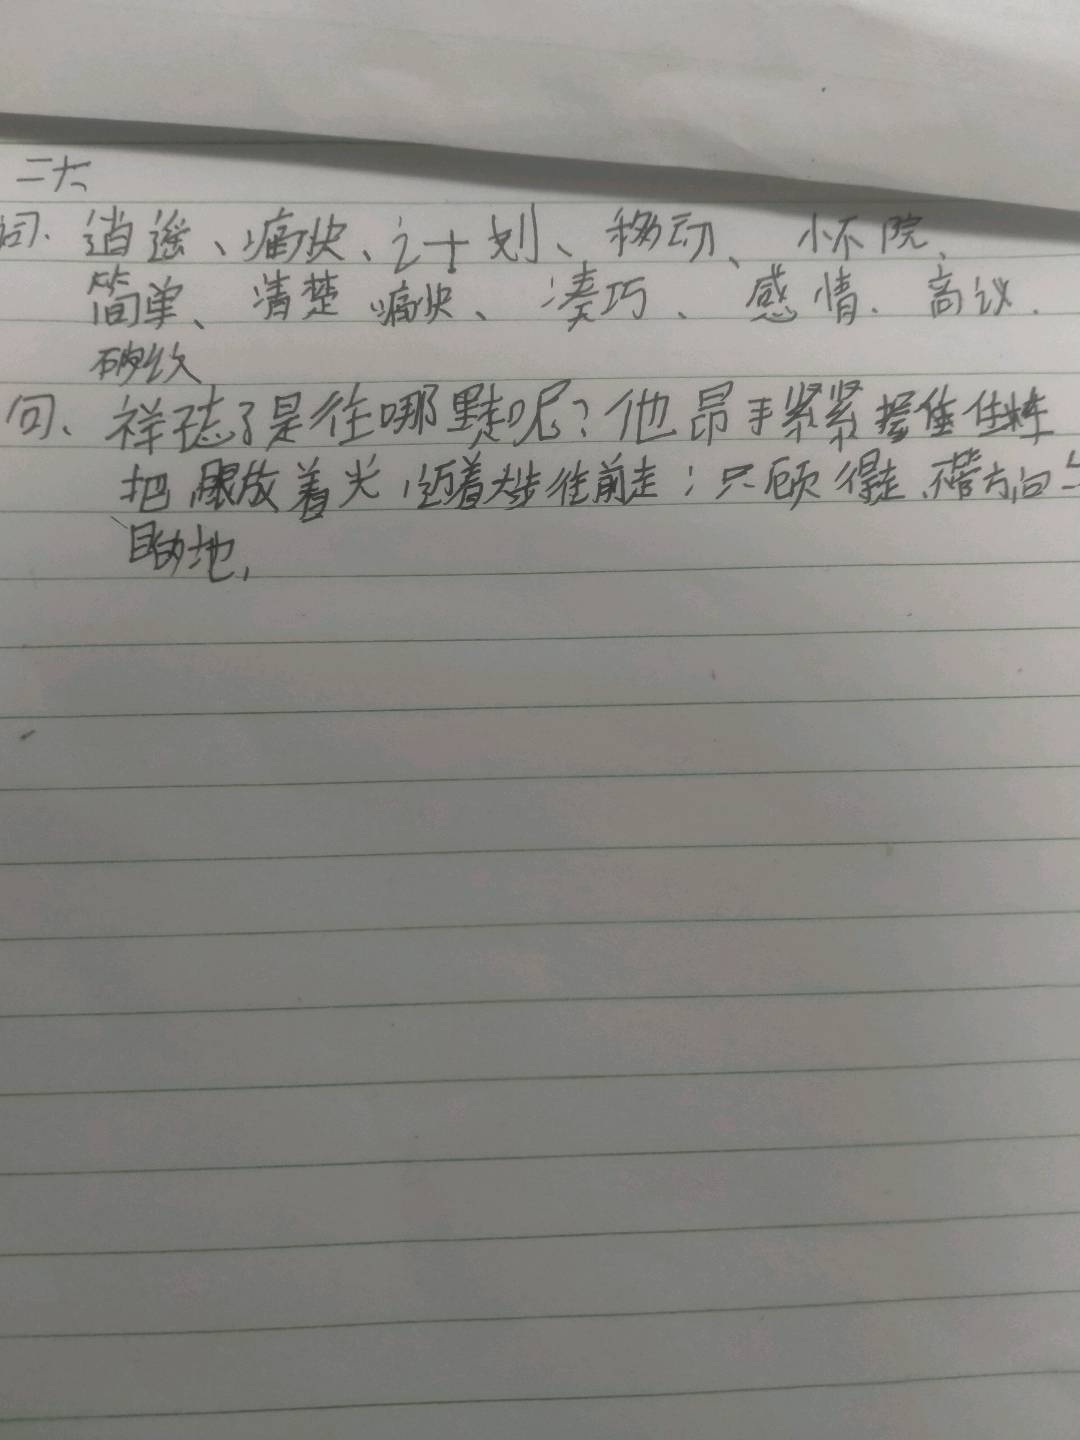 二六
词. 逍遥、痛快、计划、移动、怀院、
简单、清楚 痛快、凑巧、感情. 高议.
句、祥子忘了是往哪里走呢?他昂手紧紧握住住车
把,眼放着光,迈着大步往前走;只顾得走,不管方向与
目的地,